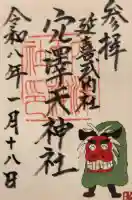 参拝
延喜式内社
穴澤天神社
令和八年一月十八日